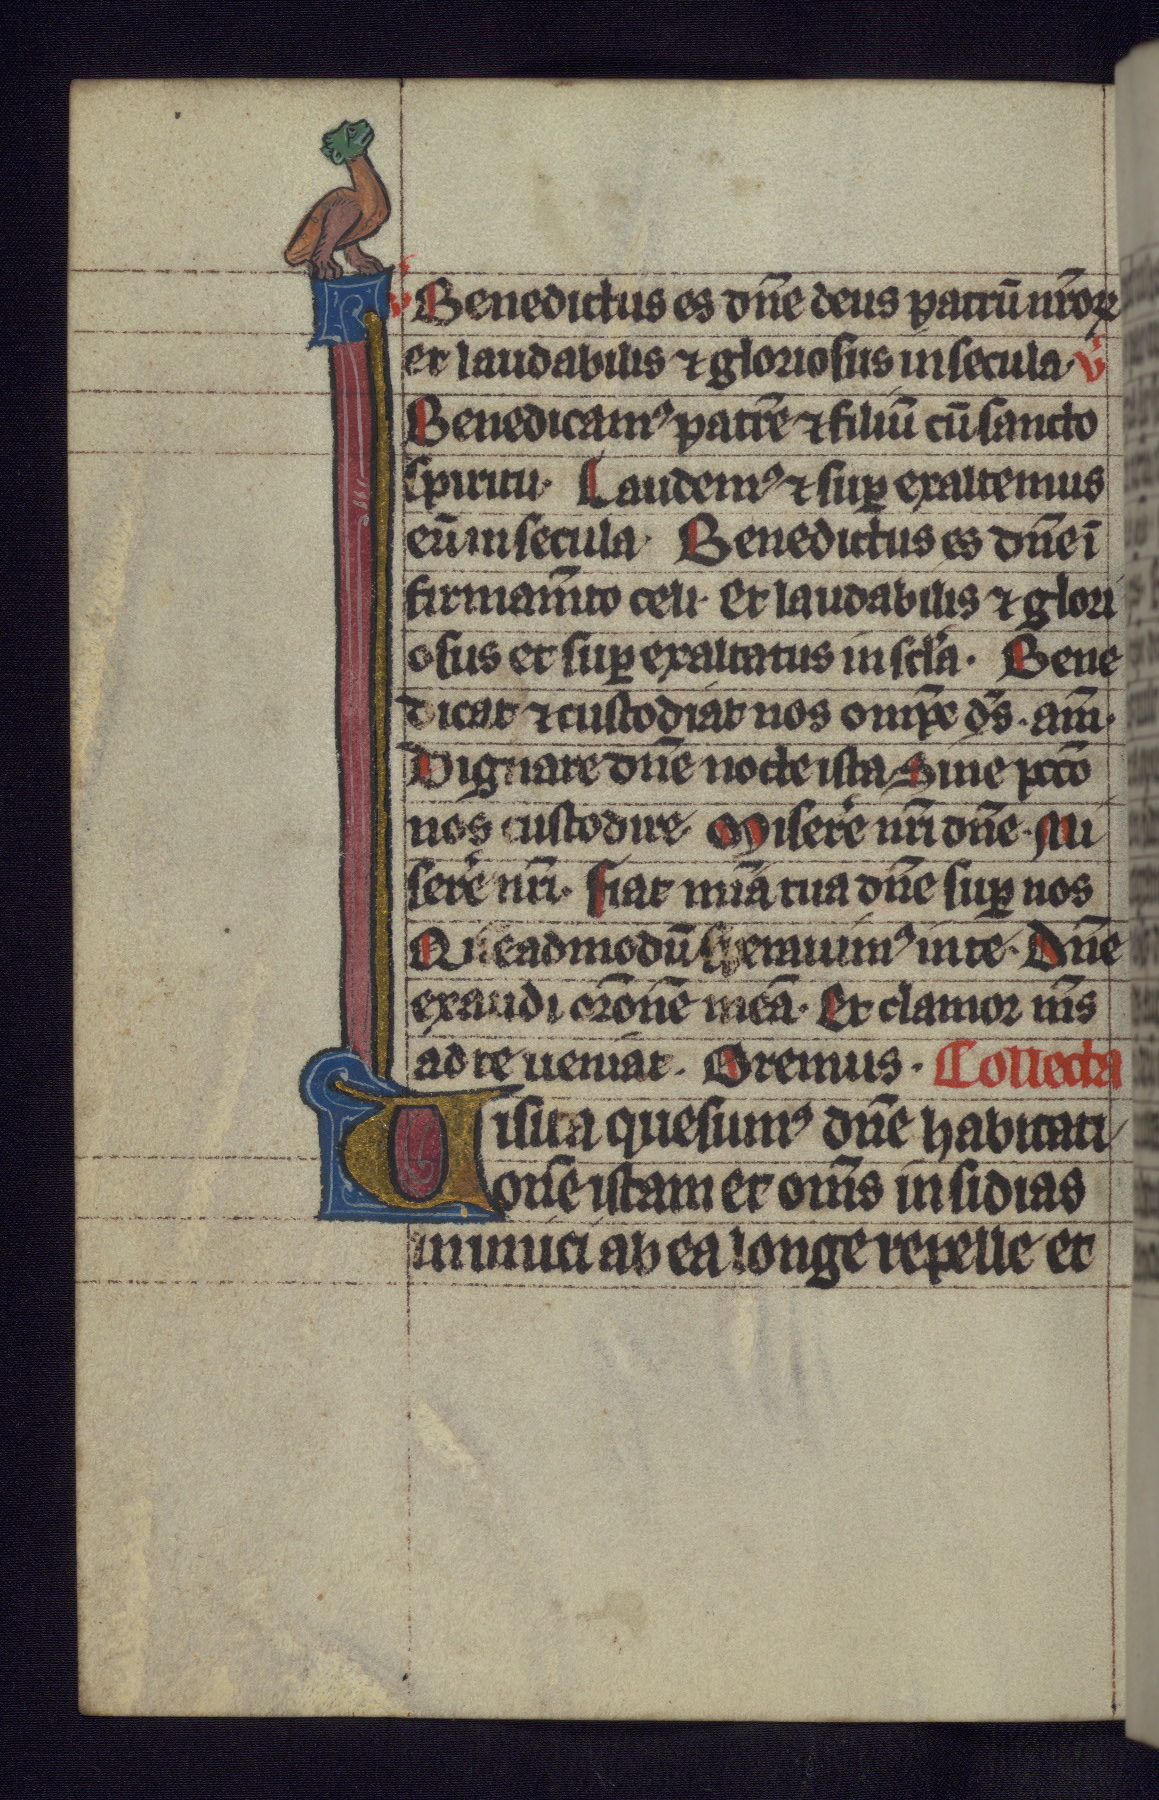 v̇ Benedictus es dn̄e deus patrū nr̄oꝝ
et laudabilis ⁊ gloriosus in secula. v̇
Benedicamꝰ patrē ⁊ filiū cū sancto
spiritu. Laudemꝰ ⁊ suꝑ exaltemus
eū in secula. Benedictus es dn̄e ī
firmam̄to celi. Et laudabilis ⁊ glori
osus et suꝑ exaltatus in scl̄a. Bene
dicat ⁊ custodiat nos omp̄x ds̄. am̄.
Dignare dn̄e nocte ista. Sine pctō
nos custodire. Miserēe nr̄i dn̄e. Mi
serēe nr̄i. Fiat mīa tua dn̄e suꝑ nos
Quēadmodū sperauimꝰ in te. Dn̄e
exaudi or̄onē meā. Et clamor ms̄
ad te ueniat. Oremus. Collecta
Uisita quesumꝰ dn̄e habitati
onē istam et oms̄ insidias
inimici ab ea longe repelle et